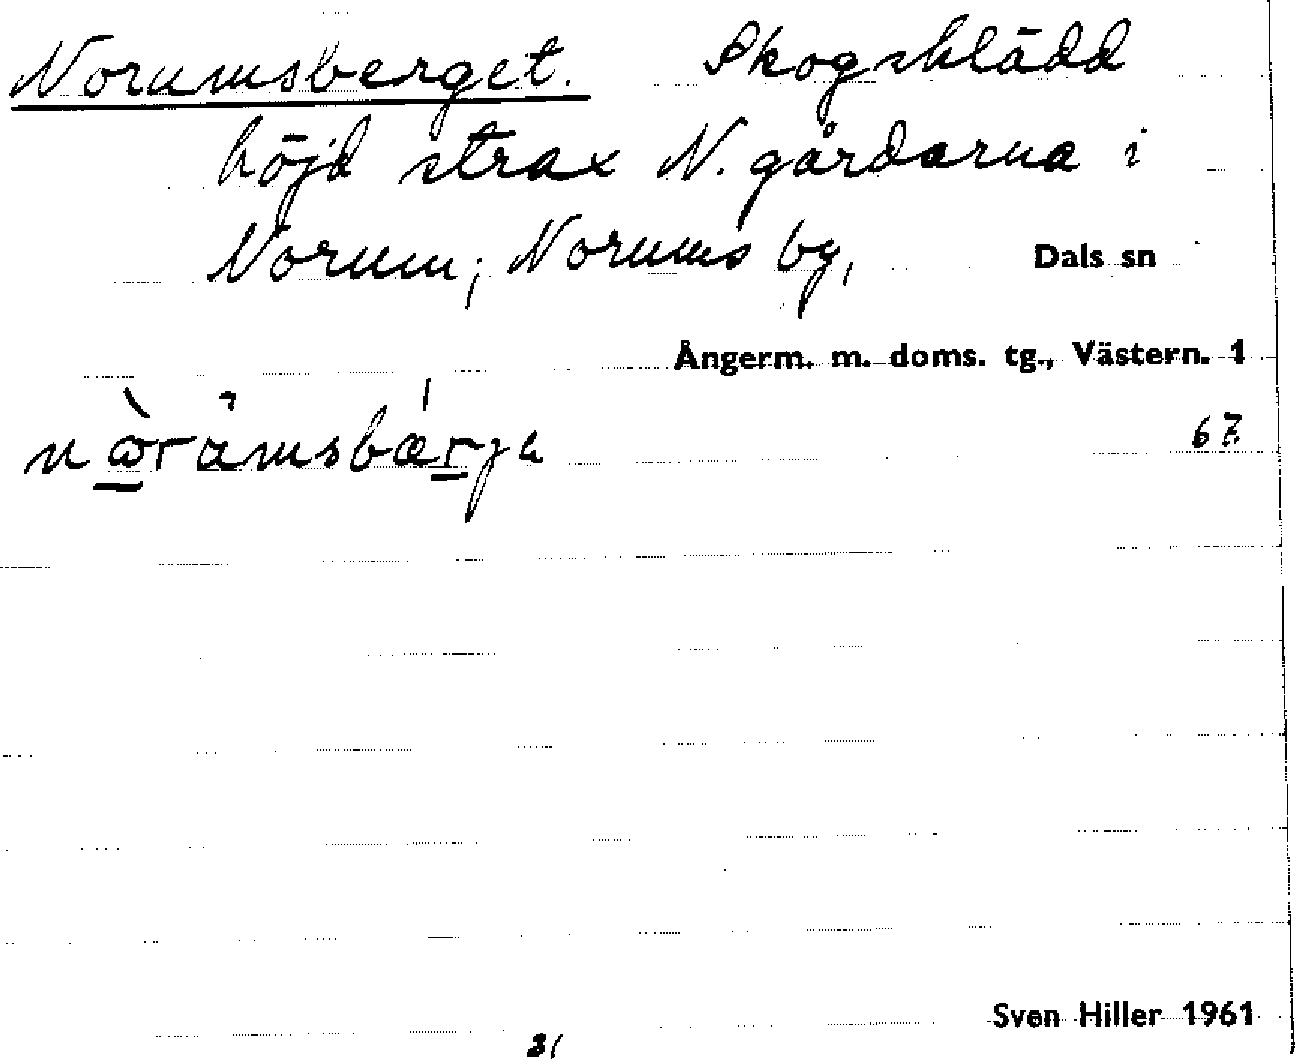 Norumsberget. Skogsklädd
höjd strax N. gårdarna i
Norum; Norums by, Dals sn
Ångerm. m. doms. tg., Västern. 1
67.
Sven Hiller 1961